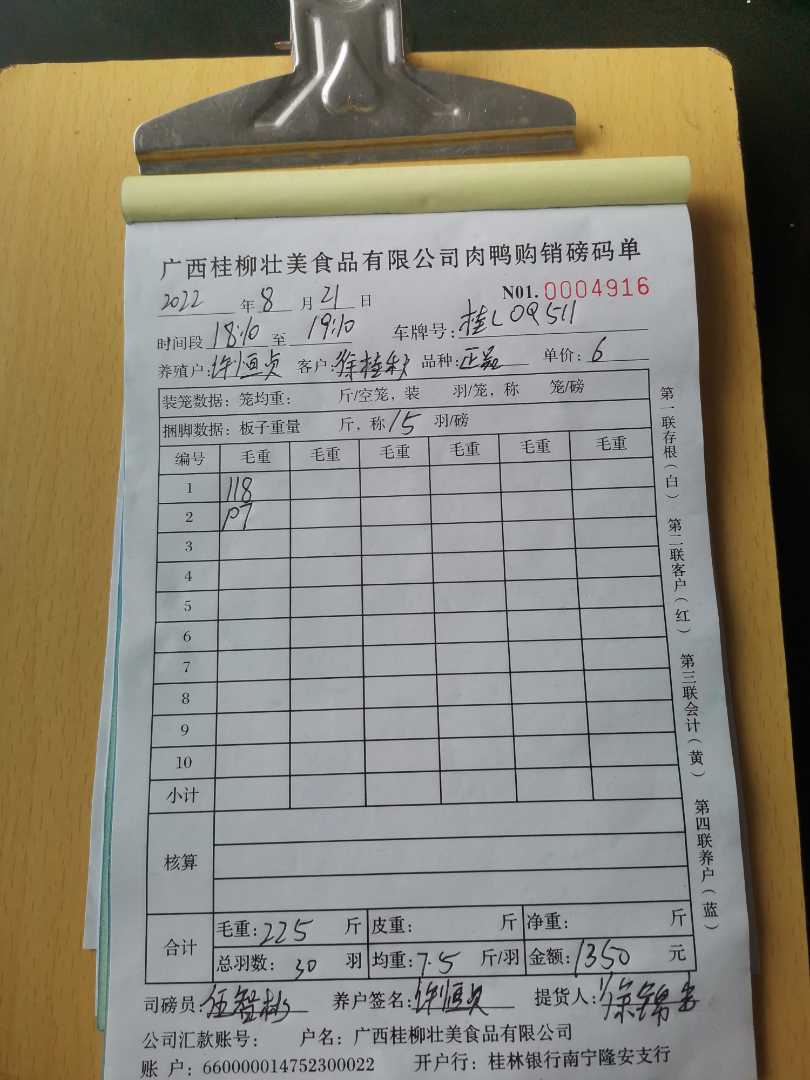 广西桂柳壮美食品有限公司肉鸭购销磅码单
2022 年 8 月 21 日 N01. 0004916
时间段 18:10 至 19:10 车牌号: 桂L0Q511
养殖户: 许恒贞 客户: 徐桂秋 品种: 正品 单价: 6
装笼数据: 笼均重: 斤/空笼, 装 羽/笼, 称 笼/磅
捆脚数据: 板子重量 斤, 称 15 羽/磅
编号 毛重 毛重 毛重 毛重 毛重 毛重
1 118
2 107
3
4
5
6
7
8
9
10
小计
核算
合计 毛重: 225 斤 皮重: 斤 净重: 斤
总羽数: 30 羽 均重: 7.5 斤/羽 金额: 1350 元
司磅员: 伍智彬 养户签名: 许恒贞 提货人: 徐锦
公司汇款账号: 户名: 广西桂柳壮美食品有限公司
账 户: 660000014752300022 开户行: 桂林银行南宁隆安支行
第一联存根(白) 第二联客户(红) 第三联会计(黄) 第四联养户(蓝)